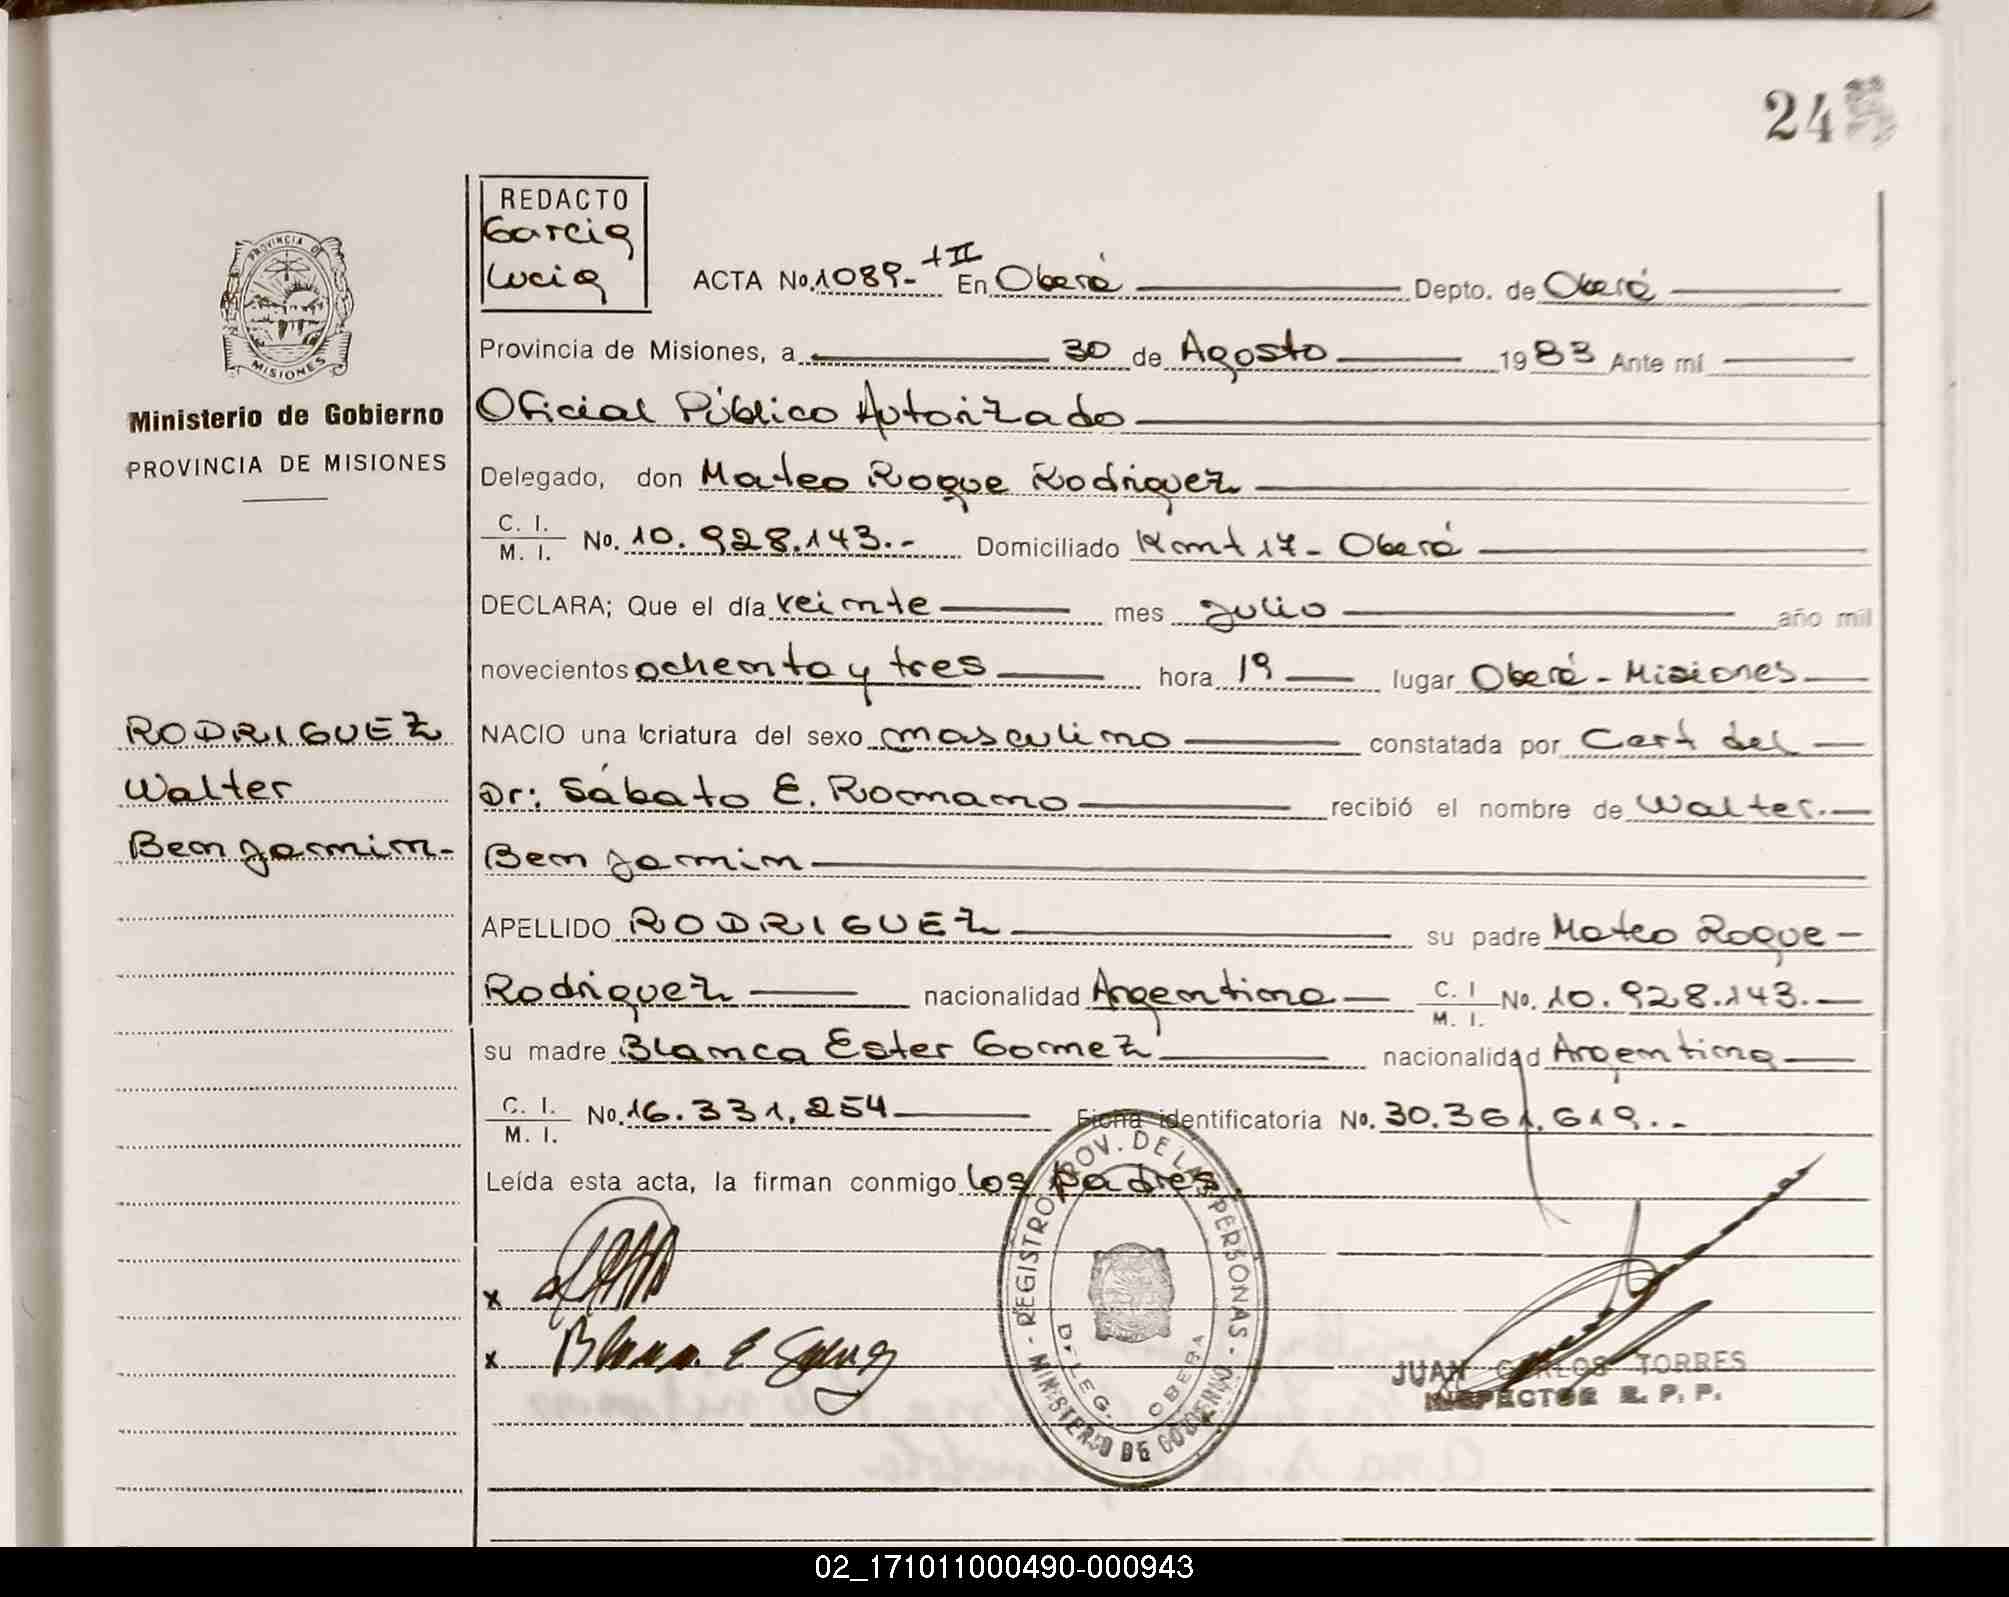 24
REDACTO
Garcia
Lucia
ACTA No. 1089- +II En Oberá Depto. de Oberá
Provincia de Misiones, a 30 de Agosto 1983 Ante mí
Oficial Público Autorizado
Delegado, don Mateo Roque Rodriguez
C. I.
M. I. No. 10.928.143.- Domiciliado Kmt 17- Oberá
DECLARA; Que el día veinte mes Julio año mil
novecientos ochenta y tres hora 19 lugar Oberá - Misiones
NACIO una criatura del sexo masculino constatada por Cert del
Dr: Sábato E. Romano recibió el nombre de Walter.
Benjamin
APELLIDO RODRIGUEZ su padre Mateo Roque
Rodriguez nacionalidad Argentina C. I
M. I. No. 10.928.143.
su madre Blanca Ester Gomez nacionalidad Argentina
C. I.
M. I. No. 16.331.254 Ficha identificatoria No. 30.361.619.-
Leída esta acta, la firman conmigo los padres.
PROVINCIA DE
MISIONES
Ministerio de Gobierno
PROVINCIA DE MISIONES
RODRIGUEZ
Walter
Benjamin-
x
x
REGISTRO PROV. DE LAS PERSONAS - MINISTERIO DE GOBIERNO -
DELEG. OBERA
JUAN CARLOS TORRES
INSPECTOR R. P. P.
02_171011000490-000943